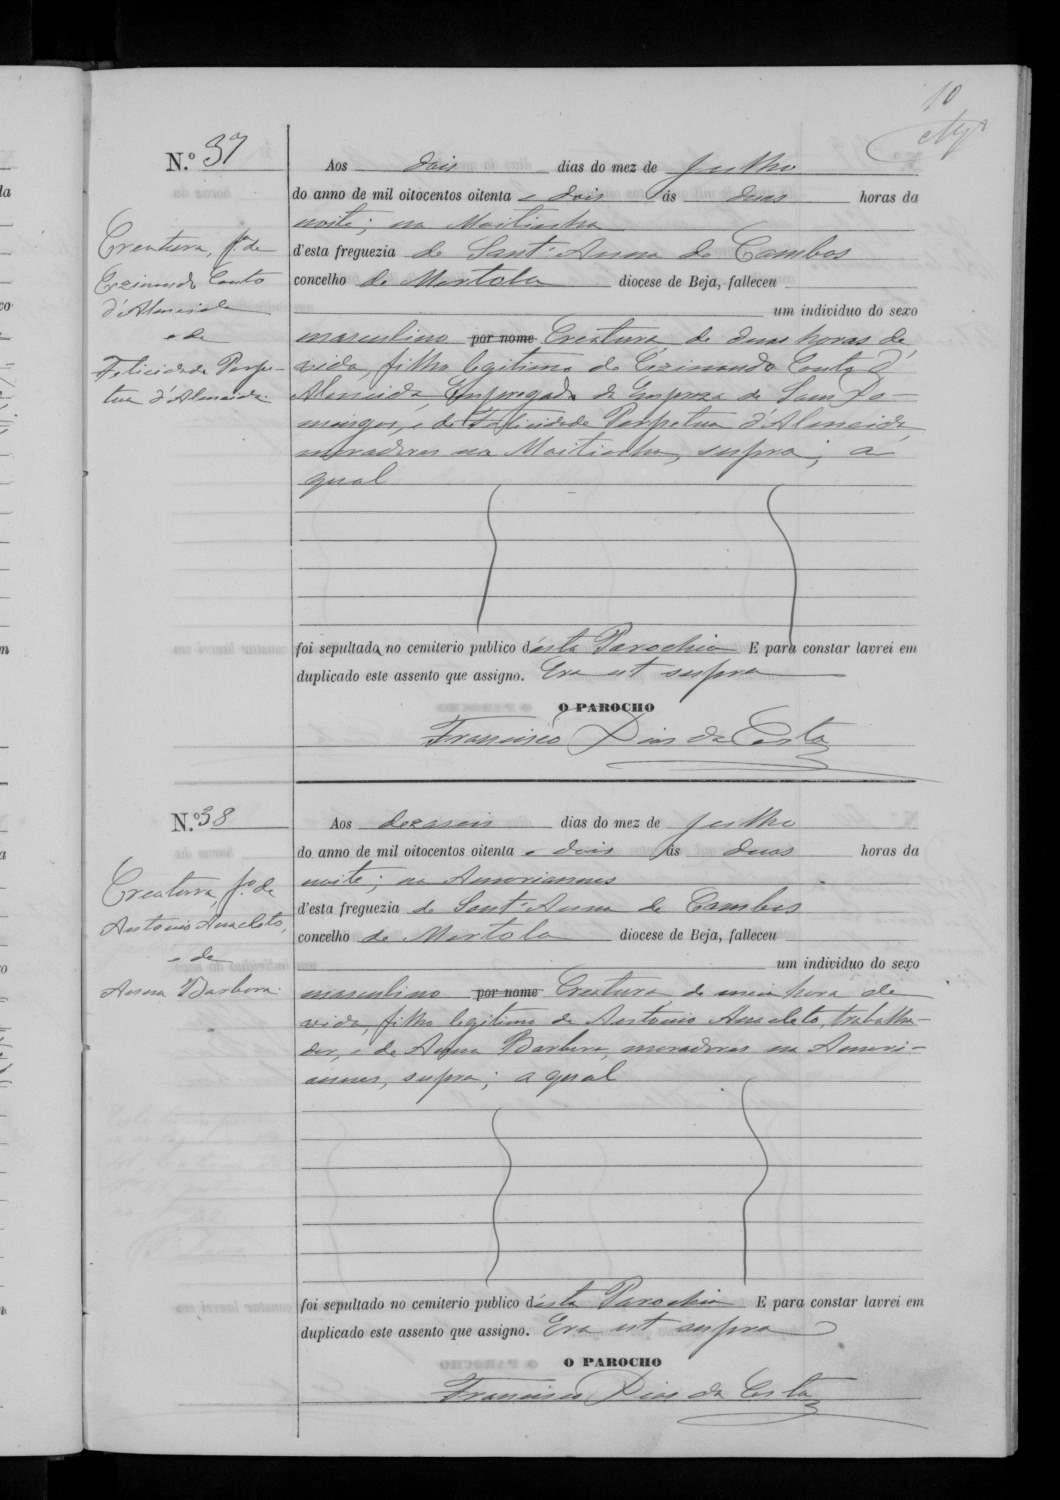 10
N.º 37
Aos dois dias do mez de Julho
do anno de mil oitocentos oitenta e dois ás duas horas da
noite; na
d'esta freguezia de Sant'Anna de Cambos
concelho de Mertola diocese de Beja, falleceu
um individuo do sexo
masculino por nome Creatura, de duas horas de
vida, filho legitimo de Cezinando Couto d'
Almeida, Empregado da Empreza de Sam Do-
mingos, e de Felicidade Perpetua d'Almeida,
moradores na supra; a
qual
Creatura, fº de
Cezinando Couto
d'Almeida
e de
Felicidade Perpe-
tua d'Almeida.
foi sepultada no cemiterio publico d'ésta Parochia E para constar lavrei em
duplicado este assento que assigno. Era ut supra
O PAROCHO
Francisco Dias da Costa
N.º 38
Aos dezaseis dias do mez de Julho
do anno de mil oitocentos oitenta e dois ás duas horas da
noite; na
d'esta freguezia de Sant'Anna de Cambos
concelho de Mertola diocese de Beja, falleceu
um individuo do sexo
masculino por nome Creatura, de meia hora de
vida, filho legitimo de Antonio Anacleto, trabalha-
dor, e de Anna Barbora, moradores na
supra; a qual
Creatura, fº de
Antonio Anacleto,
e de
Anna Barbora.
foi sepultado no cemiterio publico d'ésta Parochia E para constar lavrei em
duplicado este assento que assigno. Era ut supra
O PAROCHO
Francisco Dias da Costa